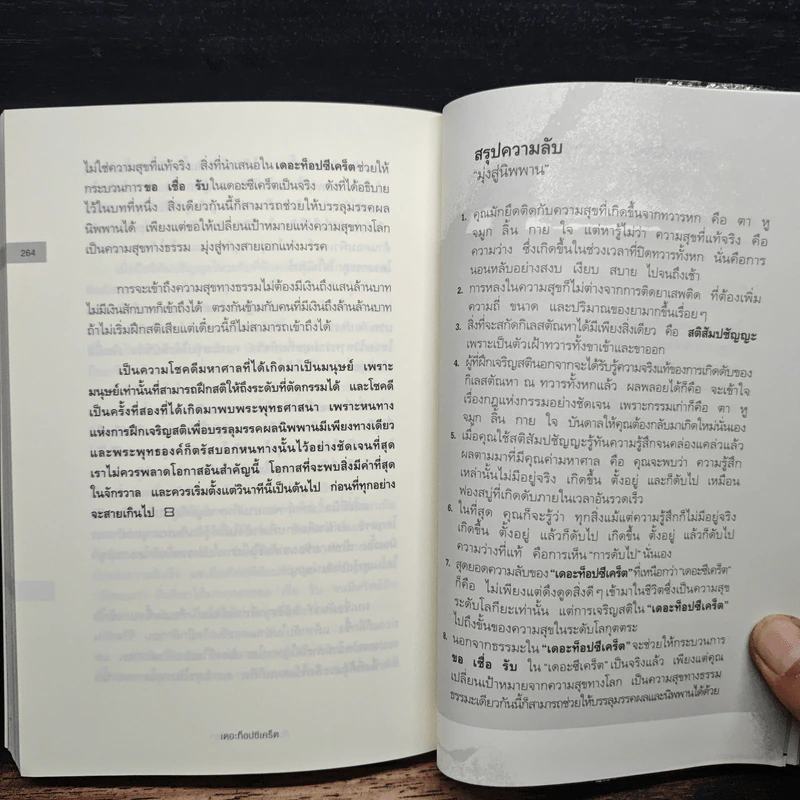 ไม่ใช่ความสุขที่แท้จริง สิ่งที่นำเสนอใน เดอะท็อปซีเคร็ต ช่วยให้
กระบวนการ ขอ เชื่อ รับ ในเดอะซีเคร็ตเป็นจริง ดังที่ได้อธิบาย
ไว้ในบทที่หนึ่ง สิ่งเดียวกันนี้ก็สามารถช่วยให้บรรลุมรรคผล
นิพพานได้ เพียงแต่ขอให้เปลี่ยนเป้าหมายแห่งความสุขทางโลก
เป็นความสุขทางธรรม มุ่งสู่ทางสายเอกแห่งมรรค
264
การจะเข้าถึงความสุขทางธรรมไม่ต้องมีเงินถึงแสนล้านบาท
ไม่มีเงินสักบาทก็เข้าถึงได้ ตรงกันข้ามกับคนที่มีเงินถึงล้านล้านบาท
ถ้าไม่เริ่มฝึกสติเสียแต่เดี๋ยวนี้ก็ไม่สามารถเข้าถึงได้
เป็นความโชคดีมหาศาลที่ได้เกิดมาเป็นมนุษย์ เพราะ
มนุษย์เท่านั้นที่สามารถฝึกสติให้ถึงระดับที่ตัดกรรมได้ และโชคดี
เป็นครั้งที่สองที่ได้เกิดมาพบพระพุทธศาสนา เพราะหนทาง
แห่งการฝึกเจริญสติเพื่อบรรลุมรรคผลนิพพานมีเพียงทางเดียว
และพระพุทธองค์ก็ตรัสบอกหนทางนั้นไว้อย่างชัดเจนที่สุด
เราไม่ควรพลาดโอกาสอันสำคัญนี้ โอกาสที่จะพบสิ่งมีค่าที่สุด
ในจักรวาล และควรเริ่มตั้งแต่วินาทีนี้เป็นต้นไป ก่อนที่ทุกอย่าง
จะสายเกินไป
เดอะท็อปซีเคร็ต
สรุปความลับ
"มุ่งสู่นิพพาน"
1. คุณมักยึดติดกับความสุขที่เกิดขึ้นจากทวารหก คือ ตา หู
จมูก ลิ้น กาย ใจ แต่หารู้ไม่ว่า ความสุขที่แท้จริง คือ
ความว่าง ซึ่งเกิดขึ้นในช่วงเวลาที่ปิดทวารทั้งหก นั่นคือการ
นอนหลับอย่างสงบ เงียบ สบาย ไปจนถึงเช้า
2. การหลงในความสุขก็ไม่ต่างจากการติดยาเสพติด ที่ต้องเพิ่ม
ความถี่ ขนาด และปริมาณของยามากขึ้นเรื่อยๆ
3. สิ่งที่จะสกัดกิเลสตัณหาได้มีเพียงสิ่งเดียว คือ สติสัมปชัญญะ
เพราะเป็นตัวเฝ้าทวารทั้งขาเข้าและขาออก
4. ผู้ที่ฝึกเจริญสตินอกจากจะได้รับรู้ความจริงแท้ของการเกิดดับของ
กิเลสตัณหา ณ ทวารทั้งหกแล้ว ผลพลอยได้ก็คือ จะเข้าใจ
เรื่องกฎแห่งกรรมอย่างชัดเจน เพราะกรรมเก่าก็คือ ตา หู
จมูก ลิ้น กาย ใจ บันดาลให้คุณต้องกลับมาเกิดใหม่นั่นเอง
5. เมื่อคุณใช้สติสัมปชัญญะรู้ทันความรู้สึกจนคล่องแคล่วแล้ว
ผลตามมาที่มีคุณค่ามหาศาล คือ คุณจะพบว่า ความรู้สึก
เหล่านั้นไม่มีอยู่จริง เกิดขึ้น ตั้งอยู่ และก็ดับไป เหมือน
ฟองสบู่ที่เกิดดับภายในเวลาอันรวดเร็ว
6. ในที่สุด คุณก็จะรู้ว่า ทุกสิ่งแม้แต่ความรู้สึกก็ไม่มีอยู่จริง
เกิดขึ้น ตั้งอยู่ แล้วก็ดับไป เกิดขึ้น ตั้งอยู่ แล้วก็ดับไป
ความว่างที่แท้ คือการเห็น "การดับไป" นั่นเอง
7. สุดยอดความลับของ "เดอะท็อปซีเคร็ต" ที่เหนือกว่า "เดอะซีเคร็ต"
ก็คือ ไม่เพียงแต่ดึงดูดสิ่งดีๆ เข้ามาในชีวิตซึ่งเป็นความสุข
ระดับโลกียะเท่านั้น แต่การเจริญสติใน "เดอะท็อปซีเคร็ต"
ไปถึงขั้นของความสุขในระดับโลกุตตระ
8. นอกจากธรรมะใน "เดอะท็อปซีเคร็ต" จะช่วยให้กระบวนการ
ขอ เชื่อ รับ ใน "เดอะซีเคร็ต" เป็นจริงแล้ว เพียงแต่คุณ
เปลี่ยนเป้าหมายจากความสุขทางโลก เป็นความสุขทางธรรม
ธรรมะเดียวกันนี้ก็สามารถช่วยให้บรรลุมรรคผลและนิพพานได้ด้วย